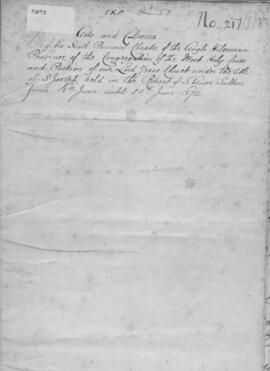 No. 217
Acts and Decrees
of the Sixth Provincial Chapter of the Anglo Hibernian
Province of the Congregation of the Most Holy Cross
and Passion of our Lord Jesus Christ under the title
of St Joseph, held in the Retreat of St Anne's Sutton
from 15th June until 20th June 1872